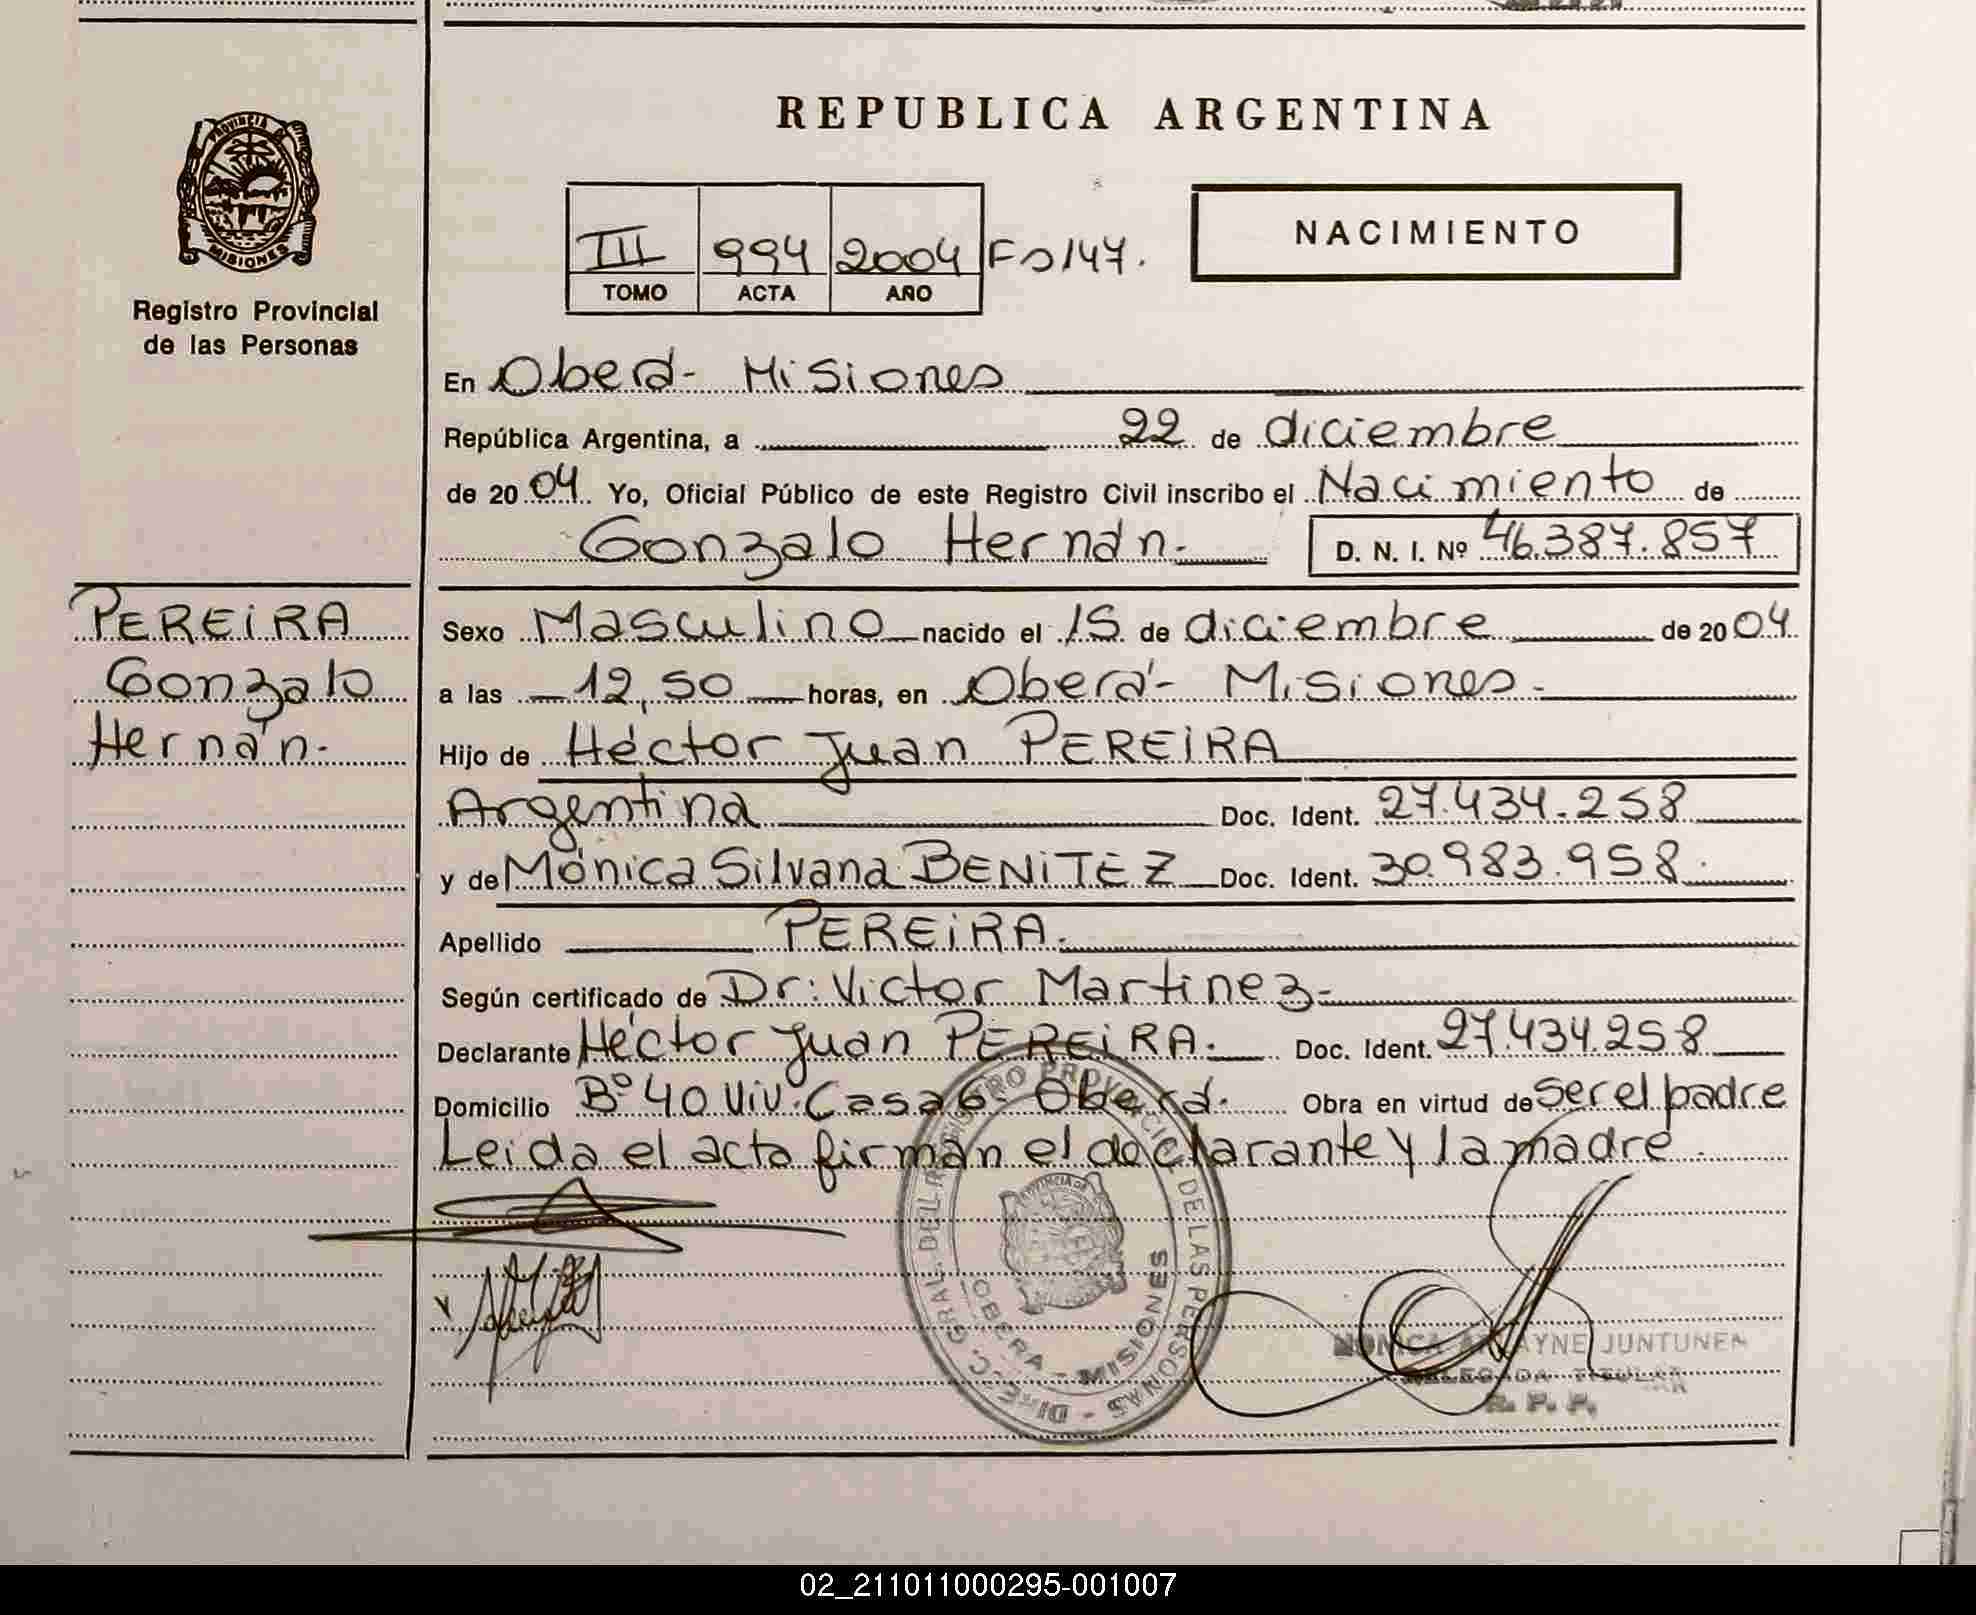 REPUBLICA ARGENTINA
PROVINCIA DE
MISIONES
Registro Provincial
de las Personas
III 994 2004 Fo 147.
TOMO ACTA AÑO
NACIMIENTO
En Oberá- Misiones
República Argentina, a 22 de diciembre
de 2004 Yo, Oficial Público de este Registro Civil inscribo el Nacimiento de
Gonzalo Hernán.- D. N. I. Nº 46.387.857
PEREIRA
Gonzalo
Hernán.-
Sexo Masculino nacido el 15 de diciembre de 2004
a las 12,50 horas, en Oberá- Misiones.-
Hijo de Héctor Juan PEREIRA
Argentina Doc. Ident. 27.434.258
y de Mónica Silvana BENITEZ Doc. Ident. 30.983.958.
Apellido PEREIRA.
Según certificado de Dr: Victor Martinez-
Declarante Héctor Juan PEREIRA. Doc. Ident. 27.434.258
Domicilio Bº 40 Viv. Casa 6- Oberá. Obra en virtud de Ser el padre
Leida el acta firman el declarante y la madre.
DIREC. GRAL. DEL REGISTRO PROVINCIAL DE LAS PERSONAS -
PROVINCIA DE
OBERA - MISIONES
MONICA JUNTUNEN
DELEGADA TITULAR
R. P. P.
02_211011000295-001007